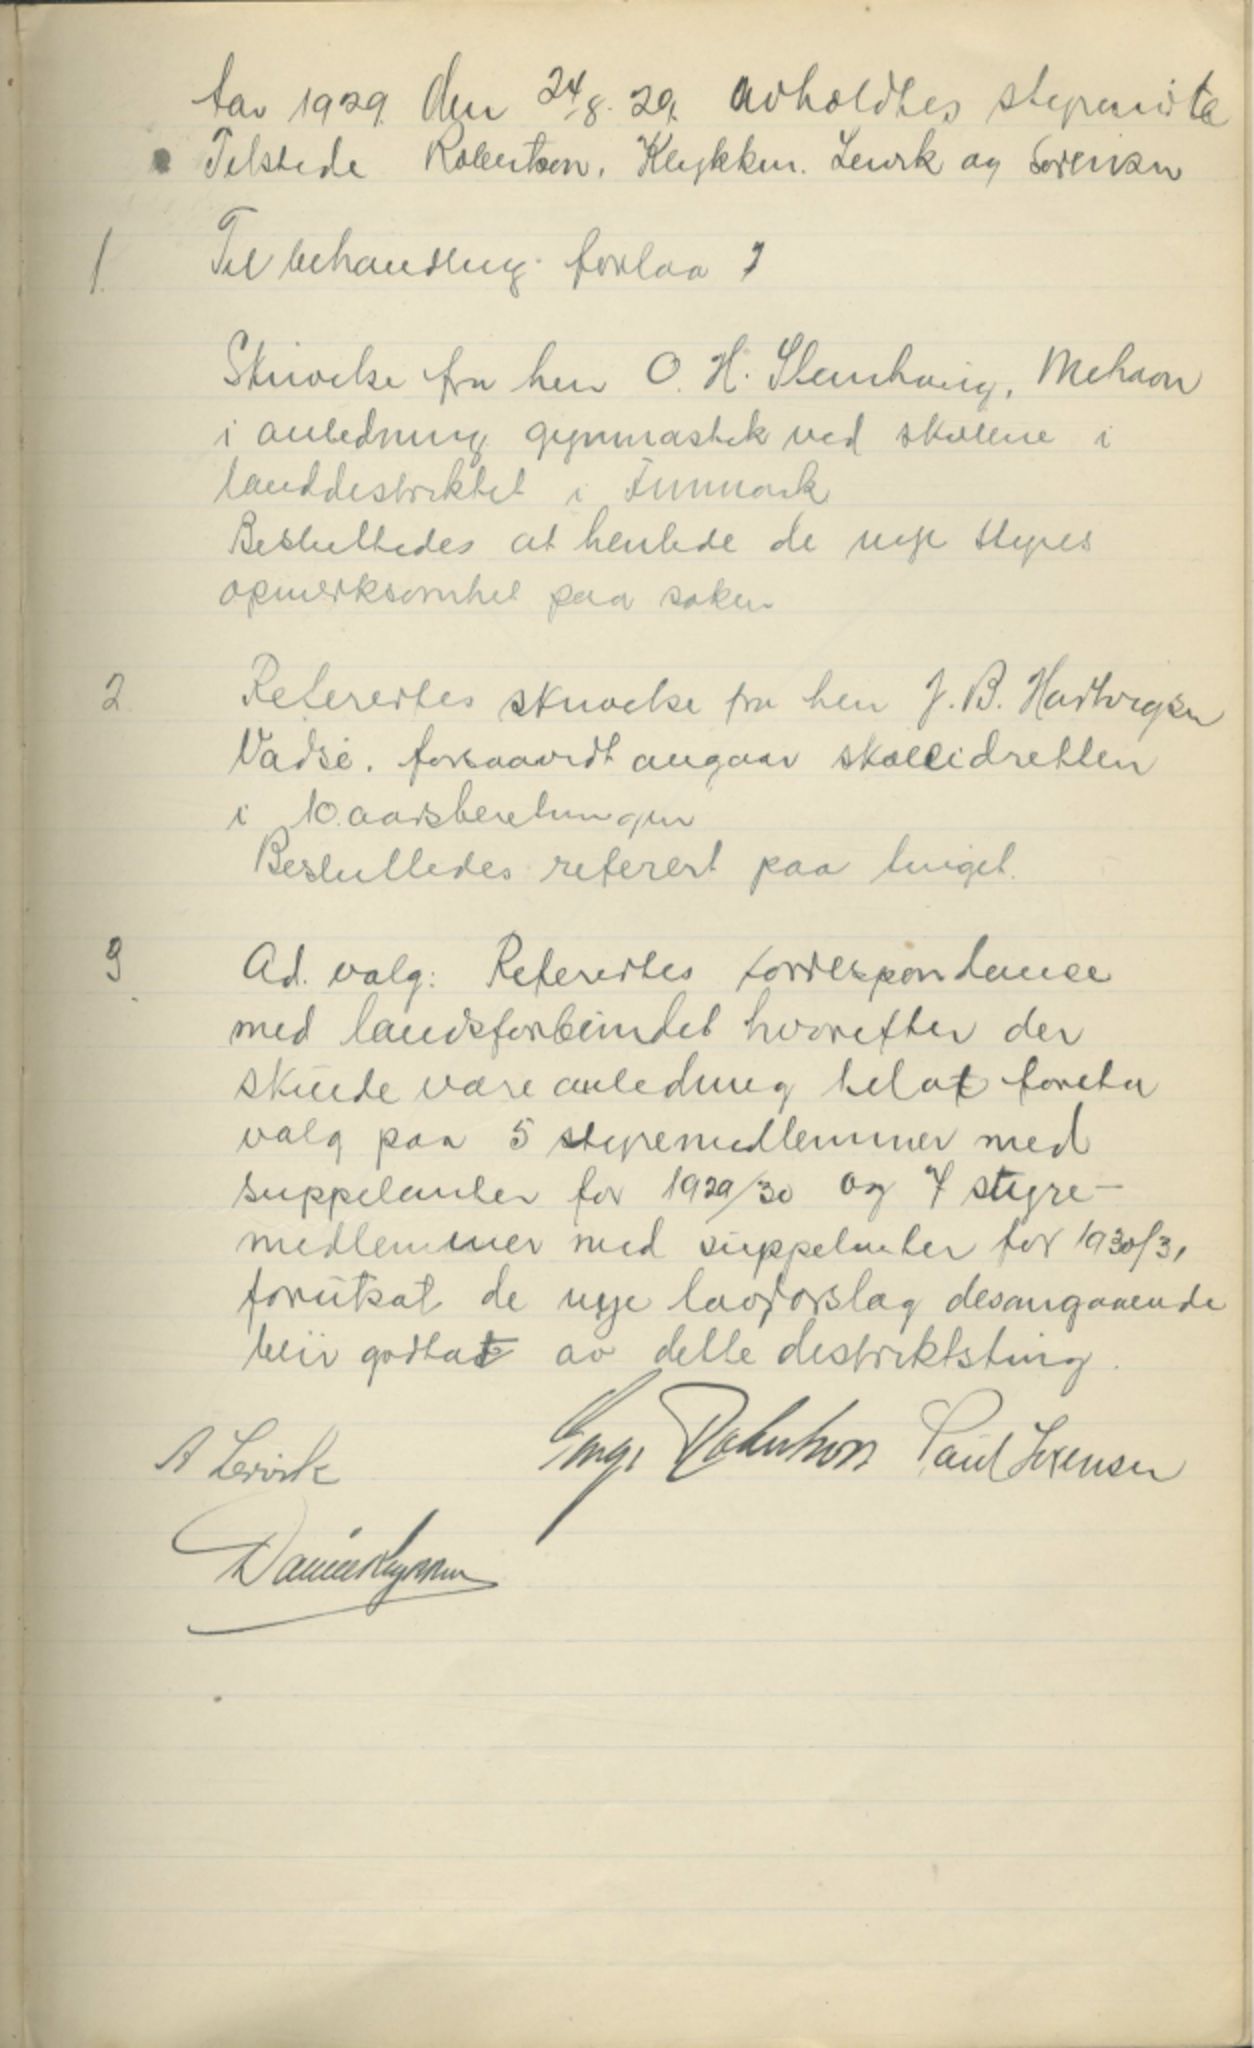 Aar 1929. den 24/8. 29. avholdtes styremøte
Tilstede Robertson, Klykken. Lervik og Sørensen
1. Til behandling forlaa
Skrivelse fra herr O. H. Mehavn
i anledning gymnastik ved skolene i
landdistriktet i Finnmark
Besluttedes at henlede de nye styres
opmerksomhet paa saken
2. Refertes skrivelse fra herr J. B. Hartvigsen
Vadsø. forsaavidt angaar skoleidretten
i 10.aarsberetningen
Besluttedes refereret paa tinget.
3 Ad. valg: Refertes korrespondance
med landsforbundet hvorefter der
skulde være anledning til at foreta
valg paa 5 styremedlemmer med
suppelanter for 1929/30 og 7 styre-
medlemmer med suppelanter for 1930/31
forutsat de nye lovforslag desangaaende
blir godtat av dette distriktsting.
A Lervik Robertson Paul Sørensen
Daniel Klykken